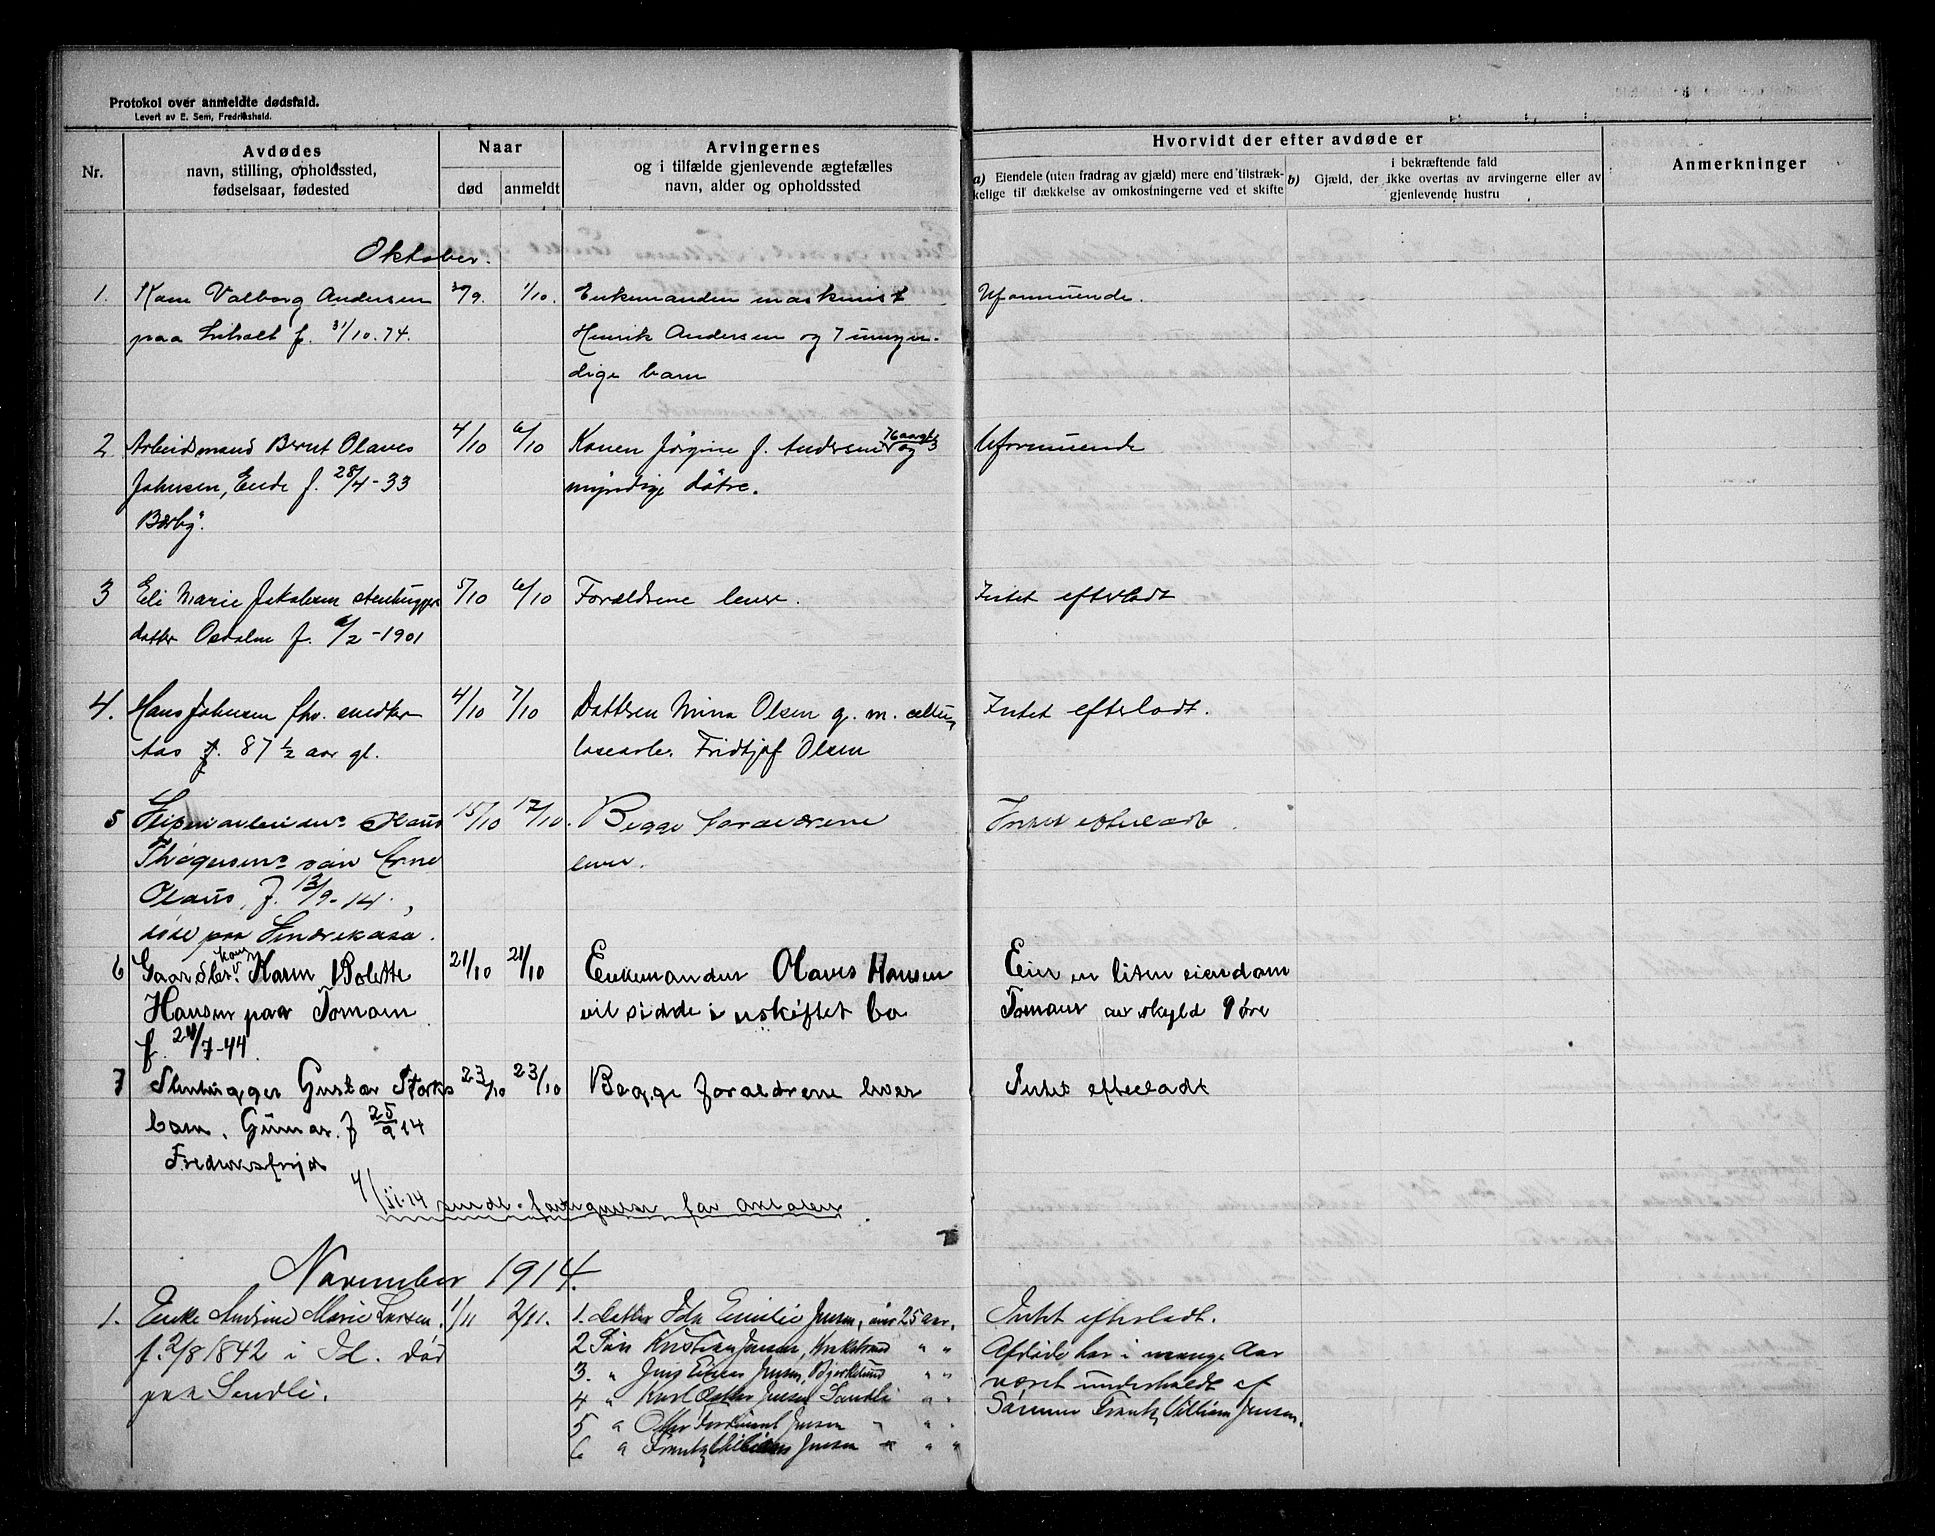 Protokol over anmeldte dødsfald.
Levert av E. Sem, Fredrikshald.
Nr.
Avdødes
navn, stilling, opholdssted,
fødselsaar, fødested
Naar
død
anmeldt
Arvingernes
og i tilfælde gjenlevende ægtefælles
navn, alder og opholdssted
Hvorvidt der efter avdøde er
a) Eiendele (uten fradrag av gjæld) mere end tilstræk-
kelige til dækkelse av omkostningerne ved et skifte
i bekræftende fald
b) Gjæld, der ikke overtas av arvingerne eller av
gjenlevende hustru
Anmerkninger
Oktober.
1. Kone Valborg Andersen
paa f. 31/10.74.
1/10.
Enkemanden maskinist
Henrik Andersen og 7 umyn-
dige barn
Uformuende.
2 Arbeidsmand Bernt Olaves
Johnsen, Ende f. 28/4-33
Berby.
4/10 6/10
Konen Jørgine f. Andersen 76 aar gl. og 3
myndige døtre.
Uformuende
3 Eli Marie Jakobsen stenhugger
datter f. 6/2-1901
5/10 6/10
Forældrene lever.
Intet efterladt
4. Hans Johnsen fhv. snedker
Aas f. 87 1/2 aar gl.
4/10 7/10
Datteren Mina Olsen g. m. cellu-
losearb. Fridtjof Olsen
Intet efterladt.
5 Sliperiarbeider Olaus
Thøgersens søn Arne
Olaus, f. 13/9-14,
døde paa
15/10 17/10.
Begge forældrene
lever.
Intet efterladt.
6 Gaardbr. kone Karen Bolette
Hansen paa Tomam
f. 24/7-44.
21/10 21/10
Enkemanden Olaves Hansen
vil sidde i uskiftet bo
Eier en liten eiendom
av skyld 9 øre
7 Stenhugger Gustav Storks
barn, Gunnar. f 25/9 14
Fredriksfryd
23/10 23/10
Begge forældrene lever
Intet efterladt
4/11-14 sendt fortegnelse for oktober.
November 1914.
1. Enke Andrine Marie Larsen.
f. 2/8 1842 i Id. Død
paa Sandli.
1/11 2/11.
1. Datter Ida Emilie Jensen, over 25 aar.
2 Søn Kristian Jensen, Krikstrand " "
3. " Jens Jensen, Bjørklund " "
4 " Karl Oskar Jensen Sandli " "
5 " Otto Ferdinant Jensen " " "
6 " Frantz William Jensen " " "
Intet efterladt.
Afdøde har i mange Aar
været underholdt af
Sønnen Frantz William Jensen.